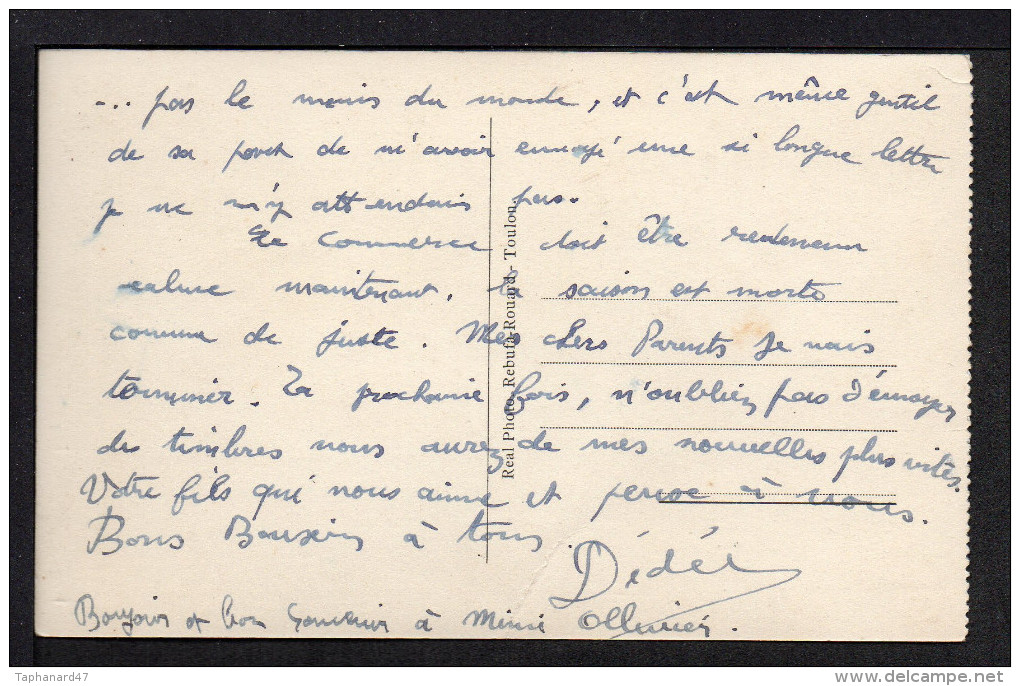 ... pas le moins du monde, et c'est même gentil
de sa part de m'avoir envoyé une si longue lettre
je ne m'y attendais pas.
Le commerce doit être redevenu
calme maintenant, la saison est morte
comme de juste. Mes chers Parents je vais
terminer. La prochaine fois, n'oubliez pas d'envoyer
des timbres vous aurez de mes nouvelles plus vites.
Votre fils qui vous aime et pense à vous.
Bons Baisers à tous.
Dédé
Bonjour et bon souvenir à Mimi Ollivier.
Real Photo. Rebufa-Rouard - Toulon
Taphanard47
delcampe.net